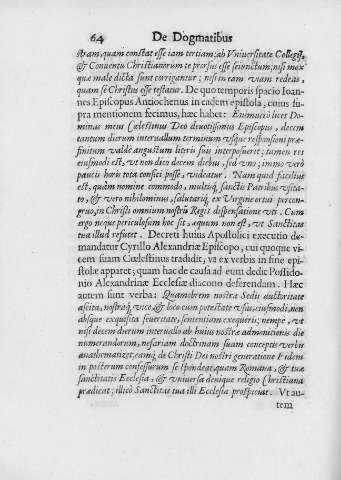 64 De Dogmatibus
stram, quam constat esse iam tertiam; ab Vniuersitate Collegij,
& Conuentu Christianorum te prorsus esse seiunctum; nisi mox
quæ male dicta sunt corrigantur; nisi in eam viam redeas,
quam se Christus esse testatur. De quo temporis spacio Ioan-
nes Episcopus Antiochenus in eadem epistola, cuius su-
pra mentionem fecimus, hæc habet: Enimuero licet Do-
minus meus Cœlestinus Deo deuotissimus Episcopus, decem
tantum dierum interuallum terminum vsque responsioni præ-
finitum valdè angustum literis suis interposuerit; tamen res
eiusmodi est, vt non dico decem diebus, sed vno; immo verò
paucis horis tota confici posse, videatur. Nam quod facilius
est, quàm nomine commodo, multisq́; Sanctis Patribus vsita-
to, & verè nihilominus, salutariq́; ex Virgine ortui percon-
gruo, in Christi omnium nostrũ Regis dispensatione vti. Cum
ergo neque periculosum hoc sit, aquum non est, vt Sanctitas
tua illud refutet. Decreti huius Apostolici executio de-
mandatur Cyrillo Alexandriæ Episcopo, cui quoque vi-
cem suam Cœlestinus tradidit, vt ex verbis in fine epi-
stolæ apparet; quam hac de causa ad eum dedit Possido-
nio Alexandrinæ Ecclesiæ diacono deferendam. Hæc
autem sunt verba: Quamobrem nostræ Sedis auctoritate
ascita, nostraq́; vice, & loco cum potestate vsus, eiusmodi, non
absque exquisita seueritate, sententiam exequeris; nempe, vt
nisi decem dierum interuallo ab huius nostræ admonitionis die
numerandorum, nefariam doctrinam suam conceptis verbis
anathematizet, eamq́; de Christi Dei nostri generatione Fidem
in posterum confessurum se spondeat, quam Romana, & tuæ
sanctitatis Ecclesia, & vniuersa denique religio Christiana
prædicat; illicò Sanctitas tua illi Ecclesiæ prospiciat. Vt au-
tem